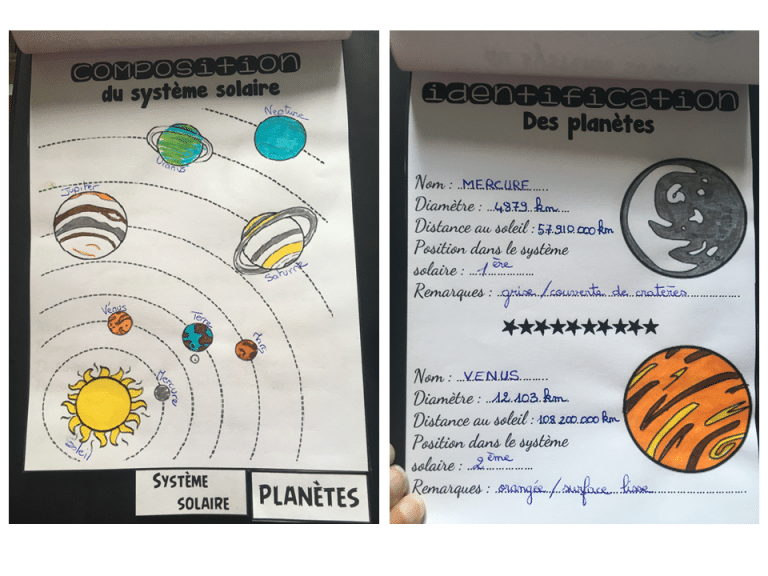 COMPOSITION
du système solaire
Neptune
Uranus
Jupiter
Saturne
Vénus
Terre
Mars
Mercure
Soleil
SYSTÈME
SOLAIRE
PLANÈTES
IDENTIFICATION
Des planètes
Nom : MERCURE
Diamètre : 4879 km
Distance au soleil : 57.910.000 km
Position dans le système
solaire : 1ère
Remarques : grise / couverte de cratères
★★★★★★★★★★
Nom : VENUS
Diamètre : 12.103 km
Distance au soleil : 108.200.000 km
Position dans le système
solaire : 2ème
Remarques : orangée / surface lisse